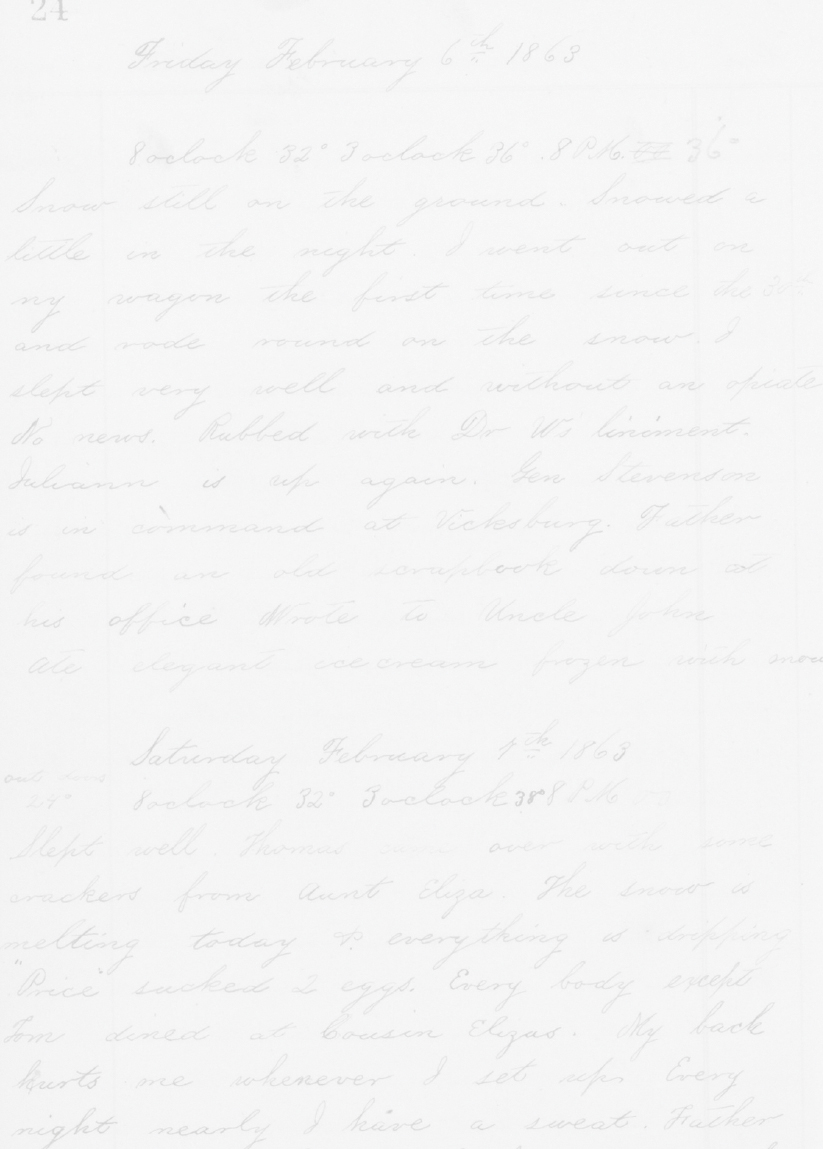 24
Friday February 6th 1863
8 oclock 32° 3 oclock 36°. 8 P.M. 36°
Snow still on the ground. Snowed a
little in the night. I went out on
my wagon the first time since the 30th
and rode round on the snow. I
slept very well and without an opiate
No news. Rubbed with Dr Ws liniment.
Juliann is up again. Gen Stevenson
is in command at Vicksburg. Father
found an old scrapbook down at
his office Wrote to Uncle John
Ate elegant ice cream frozen with snow
Saturday February 7th 1863
out
29°
8 oclock 32° 3 oclock 38° 8 P.M.
Slept well. Thomas came over with some
crackers from Aunt Eliza. The snow is
melting today & everything is dripping
"Price" sucked 2 eggs. Every body except
Tom dined at Cousin Elizas. My back
hurts me whenever I set up. Every
night nearly I have a sweat. Father